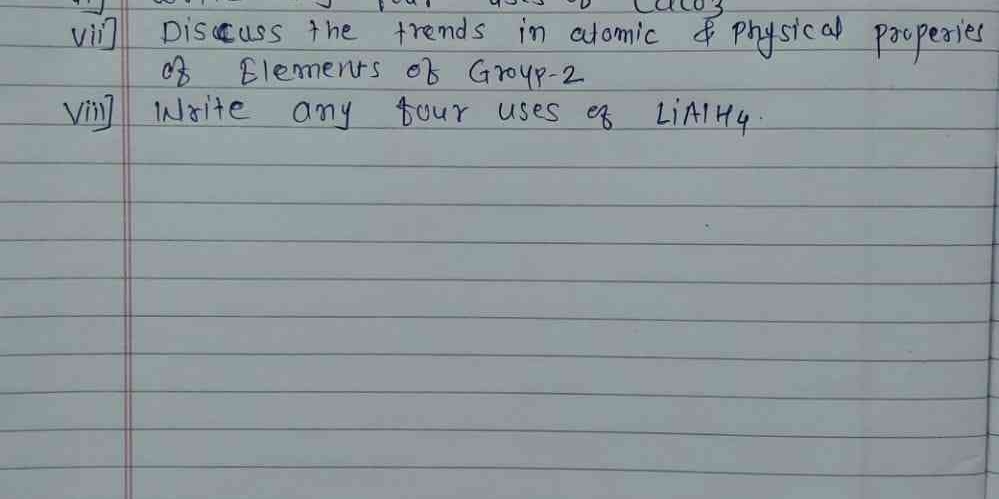 uses of CaCO3
vii] Discuss the trends in atomic & physical properies
of Elements of Group-2
viii] Write any four uses of LiAlH4.